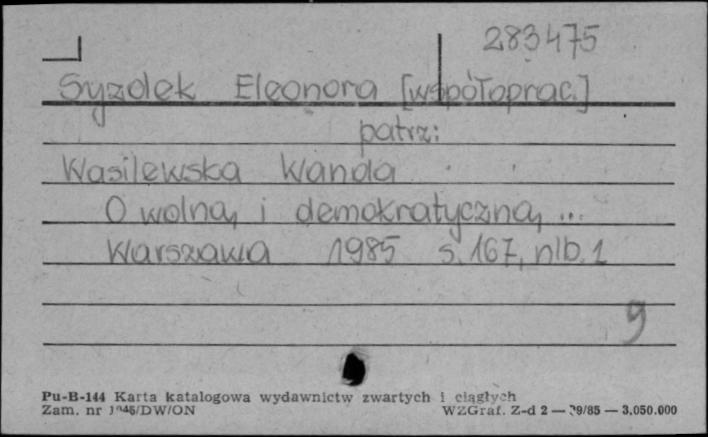 283475
Syzdek Eleonora [współoprac.]
patrz:
Wasilewska Wanda
O wolną i demokratyczną ...
Warszawa 1985 s. 167, nlb. 1
9
Pu-B-144 Karta katalogowa wydawnictw zwartych i ciągłych
Zam. nr /DW/ON WZGraf. Z-d 2 — 9/85 — 3,050.000